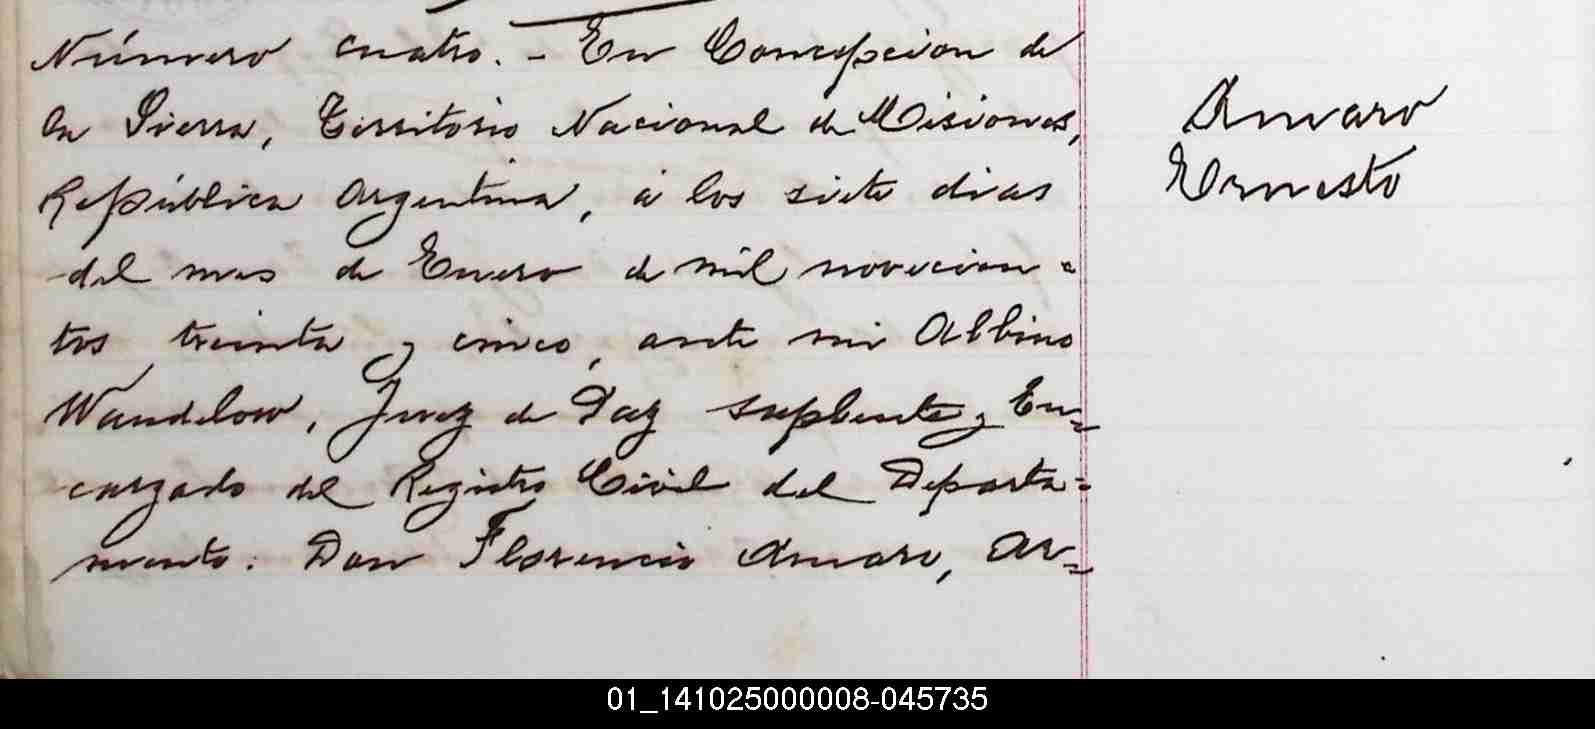 Número cuatro. - En Concepcion de
la Sierra, Territorio Nacional de Misiones,
República Argentina, á los siete dias
del mes de Enero de mil novecien=
tos treinta y cinco, ante mi Albino
Wandelow, Juez de Paz suplente y En=
cargado del Registro Civil del Departa=
mento: Don Florencio Amaro, Ar=
Amaro
Ernesto
01_141025000008-045735